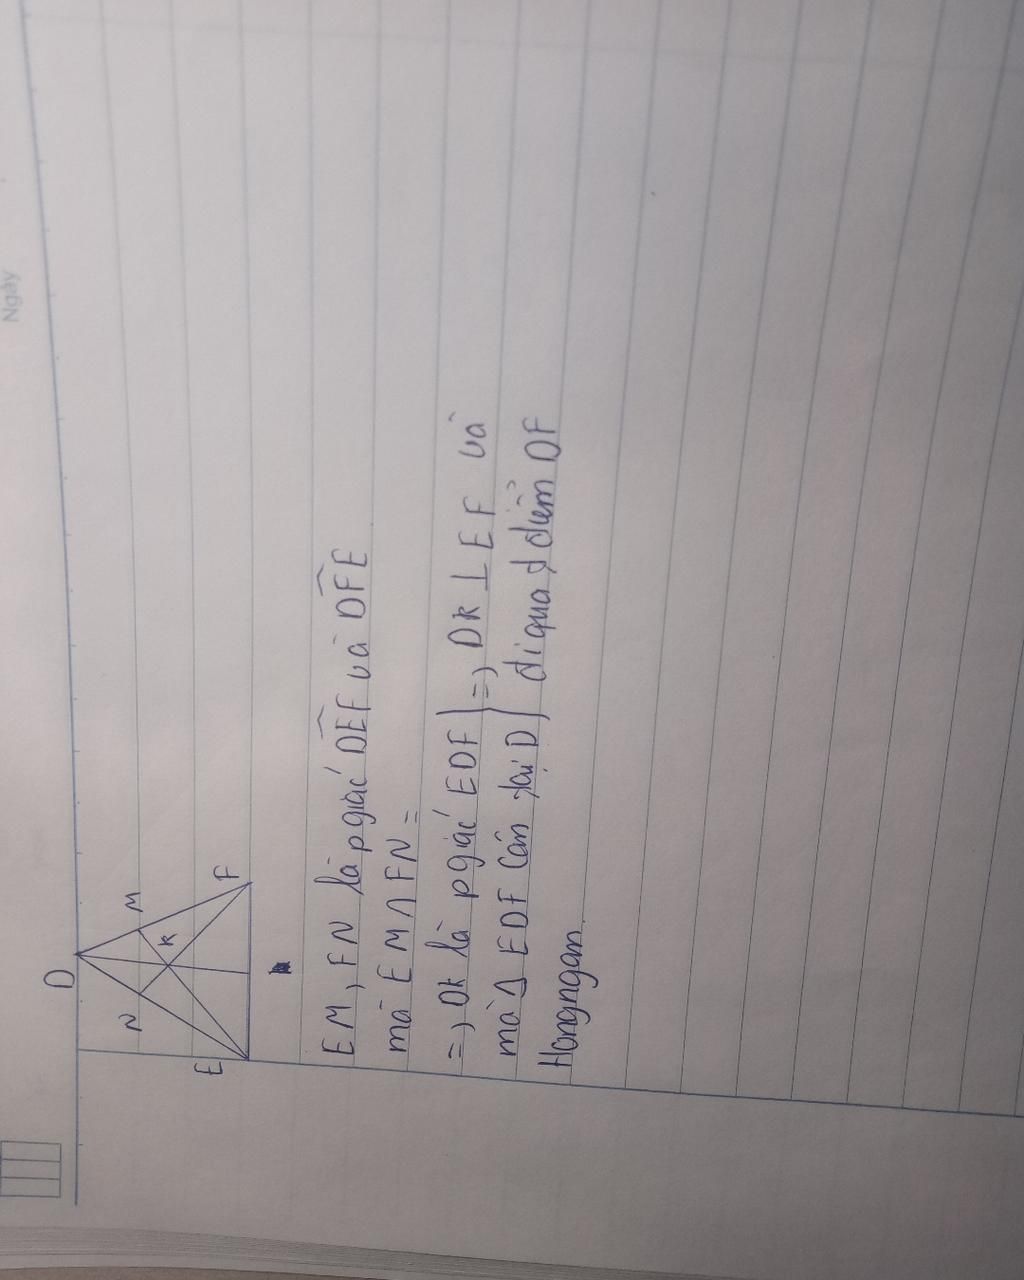 Ngày
D
N
M
K
E
F
EM, FN là pgiác DEF và DFE
mà EM ∩ FN =
=> DK là pgiác EDF } => DK ⊥ EF và
mà Δ EDF cân tại D } đi qua điểm DF
Hongngan.